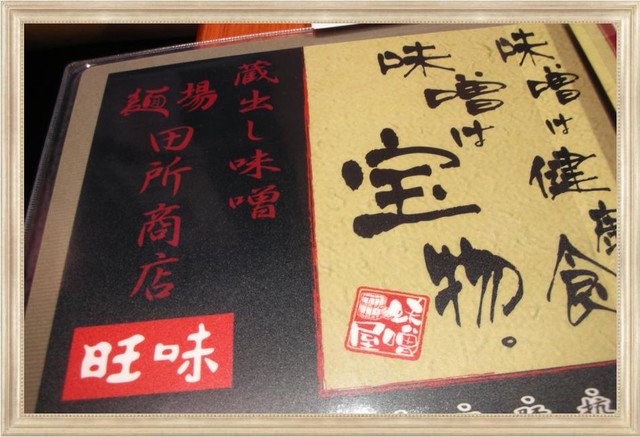 味噌は健康食
味噌は
宝物。
蔵出し味噌
麺場
田所商店
旺味
味噌